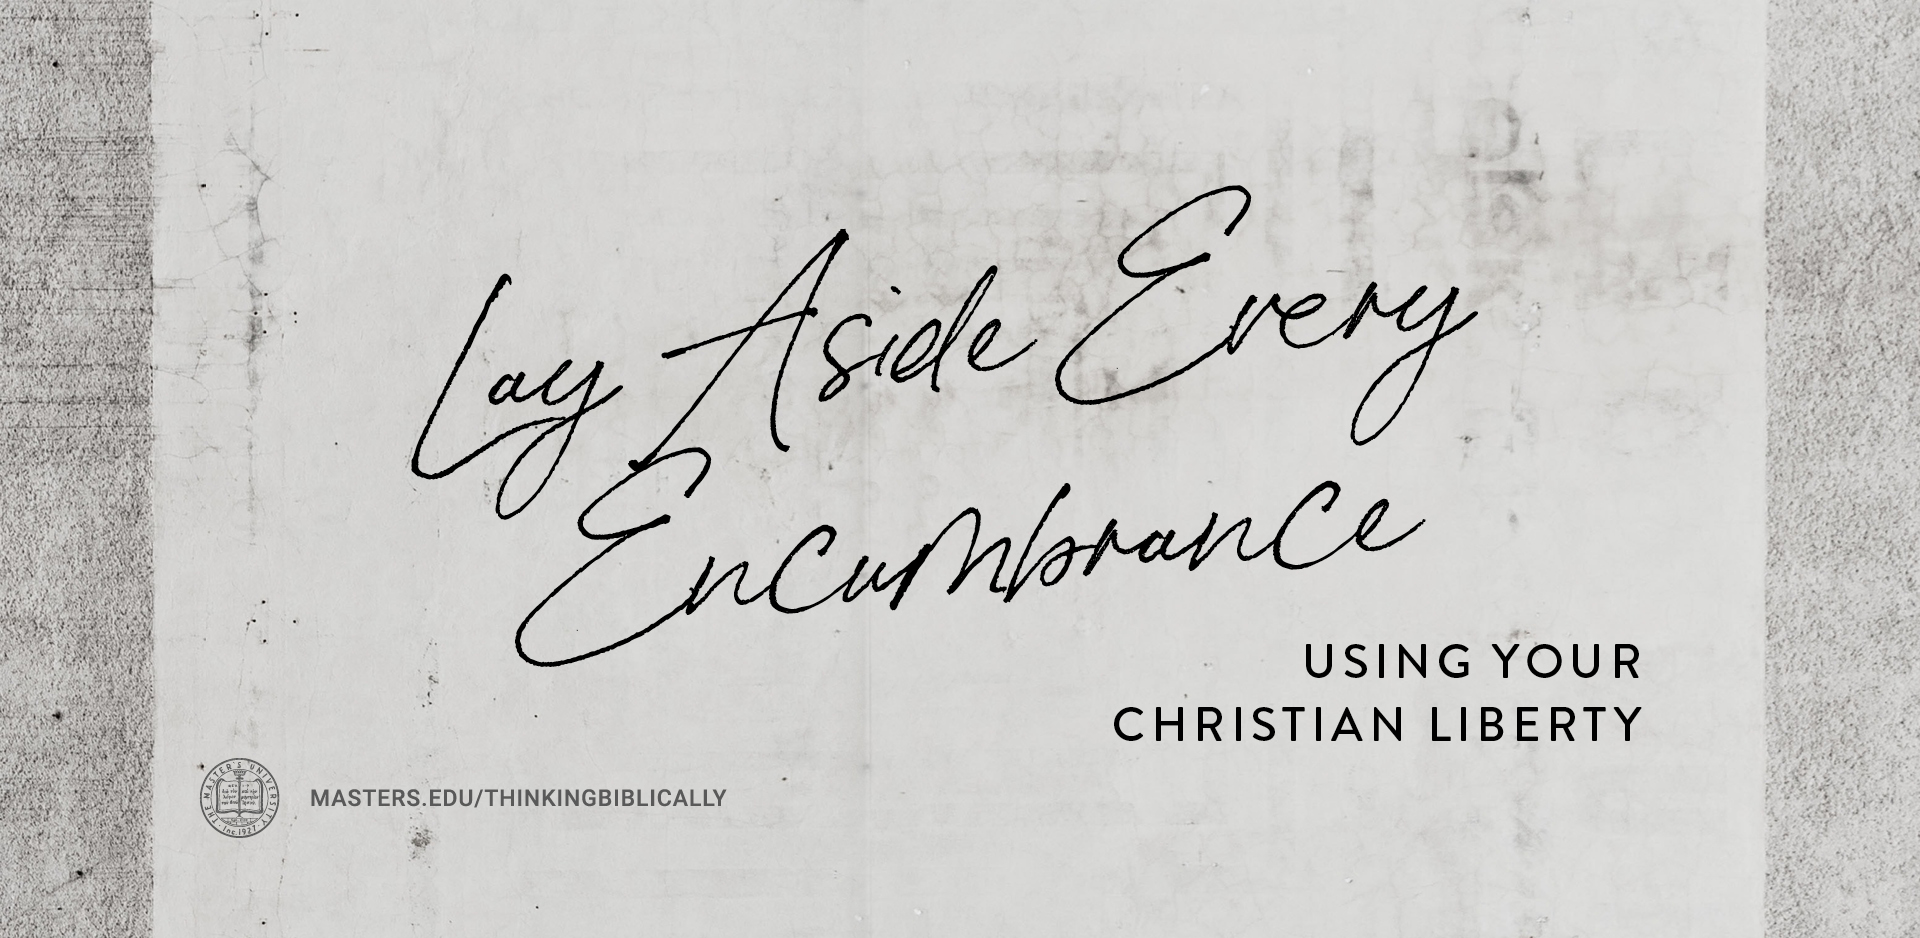 Lay Aside Every
Encumbrance
USING YOUR
CHRISTIAN LIBERTY
THE MASTER'S UNIVERSITY
Inc. 1927
MASTERS.EDU/THINKINGBIBLICALLY